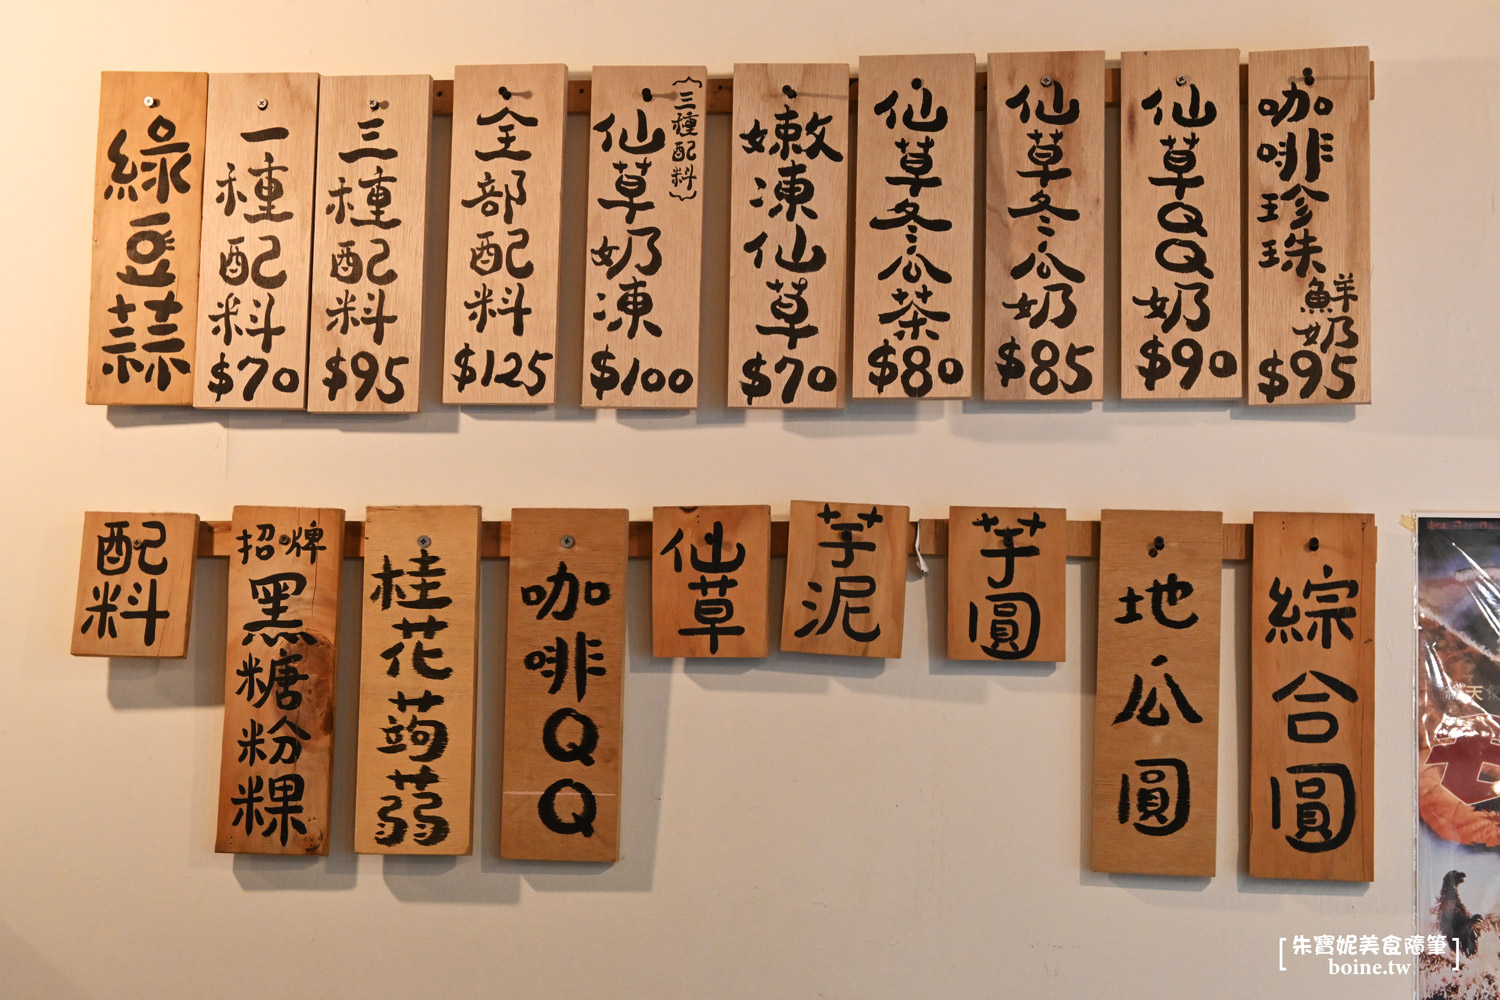 綠豆蒜
一種配料
$70
三種配料
$95
全部配料
$125
仙草奶凍
{三種配料}
$100
嫩凍仙草
$70
仙草冬瓜茶
$80
仙草冬瓜奶
$85
仙草QQ奶
$90
咖啡珍珠鮮奶
$95
配料
招牌
黑糖粉粿
桂花蒟蒻
咖啡QQ
仙草
芋泥
芋圓
地瓜圓
綜合圓
天
朱寶妮美食隨筆
boine.tw